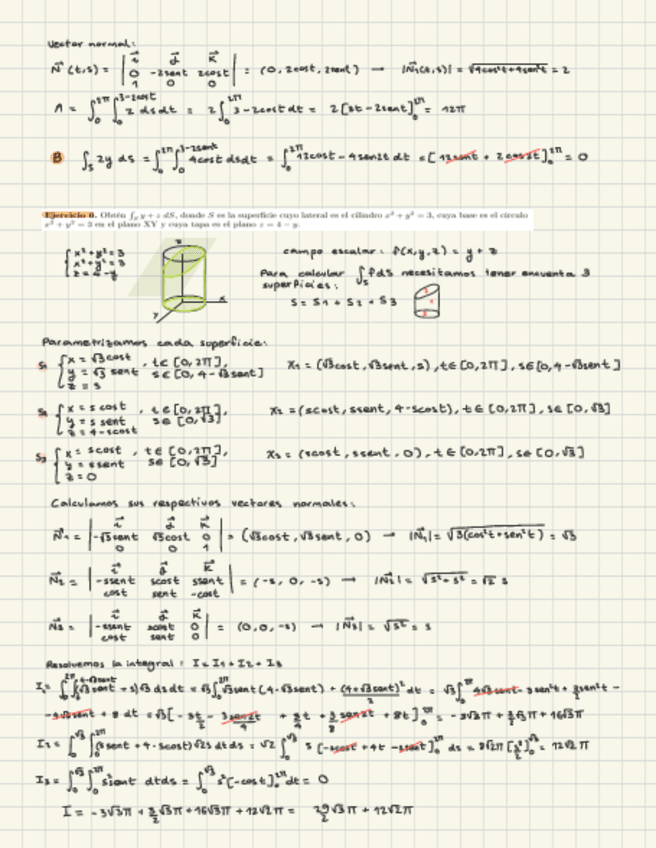 Vector normal:
N⃗(t,s) = | i⃗ j⃗ k⃗ ; 0 -2sent 2cost ; 1 0 0 | = (0, 2cost, 2sent) → |N⃗₁(t,s)| = √4cos²t+4sen²t = 2
A = ∫₀^2π ∫₀^3-2cost 2 ds dt = 2∫₀^2π 3-2cost dt = 2[3t-2sent]₀^2π = 12π
B ∫_S 2y ds = ∫₀^2π ∫₀^3-2cost 4cost ds dt = ∫₀^2π 12cost - 4sen2t dt = [12sent + 2cos2t]₀^2π = 0
Ejercicio 6. Obtén ∫_S y + z dS, donde S es la superficie cuyo lateral es el cilindro x² + y² = 3, cuya base es el círculo
x² + y² = 3 en el plano XY y cuya tapa es el plano z = 4 − y.
x²+y²=3
x²+y²=3
z = 4-y
z
x
y
campo escalar: f(x,y,z) = y + z
Para calcular ∫_S f ds necesitamos tener encuenta 3
superficies:
S = S1 + S2 + S3
Parametrizamos cada superficie:
S₁ { x = √3 cost , t ∈ [0,2π], X₁ = (√3cost, √3sent, s), t ∈ [0,2π], s ∈ [0, 4-√3sent]
y = √3 sent s ∈ [0, 4-√3sent]
z = s
S₂ { x = s cost , t ∈ [0,2π], X₂ = (scost, ssent, 4-scost), t ∈ [0,2π], s ∈ [0,√3]
y = s sent s ∈ [0,√3]
z = 4-scost
S₃ { x = scost , t ∈ [0,2π], X₃ = (scost, ssent, 0), t ∈ [0,2π], s ∈ [0,√3]
y = ssent s ∈ [0,√3]
z = 0
Calculamos sus respectivos vectores normales:
N⃗₁ = | i⃗ j⃗ k⃗ ; -√3sent √3cost 0 ; 0 0 1 | = (√3cost, √3sent, 0) → |N⃗₁| = √3(cos²t+sen²t) = √3
N⃗₂ = | i⃗ j⃗ k⃗ ; -ssent scost ssent ; cost sent -cost | = (-s, 0, -s) → |N⃗₂| = √s²+s² = √2 s
N⃗₃ = | i⃗ j⃗ k⃗ ; -ssent scost 0 ; cost sent 0 | = (0,0,-s) → |N⃗₃| = √s² = s
Resolvemos la integral: I = I₁ + I₂ + I₃
I₁ = ∫₀^2π ∫₀^4-√3sent (√3sent + s)√3 ds dt = √3∫₀^2π √3sent(4-√3sent) + (4+√3sent)²/2 dt = √3∫₀^2π 4√3sent - 3sen²t + 3/2 sen²t -
- 4√3sent + 8 dt = √3[-3t/2 - 3sen2t/4 + 3t/4 + 3/8 sen2t + 8t]₀^2π = -3√3π + 3/2√3π + 16√3π
I₂ = ∫₀^√3 ∫₀^2π (ssent + 4 - scost)√2s dt ds = √2 ∫₀^√3 s [-scost + 4t - ssent]₀^2π ds = 8√2π [s²/2]₀^√3 = 12√2π
I₃ = ∫₀^√3 ∫₀^2π s²sent dt ds = ∫₀^√3 s²[-cost]₀^2π dt = 0
I = -3√3π + 3/2√3π + 16√3π + 12√2π = 29/2√3π + 12√2π